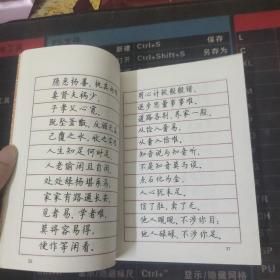 新建 Ctrl+S 保存
Ctrl+Shift+S 另存为
隐恶扬善,执其两
妻贤夫祸少,
子孝父心宽。
既坠釜甑,反顾无
已覆之水,收之实
人生知足何时足,
人老偷闲且自闲。
处处绿杨堪系马,
家家有路通长安。
见者易,学者难。
莫将容易得,
便作等闲看。
用心计较般般错,
退步思量事事难。
道路各别,养家一般。
从俭入奢易,
从奢入俭难。
知音说与知音听,
不是知音莫与谈。
点石化为金,
人心犹未足。
信了肚,卖了屋。
他人睍睍,不涉你目;
他人碌碌,不涉你足。
37
显示/隐藏标尺 Ctrl+
显示/隐藏网格